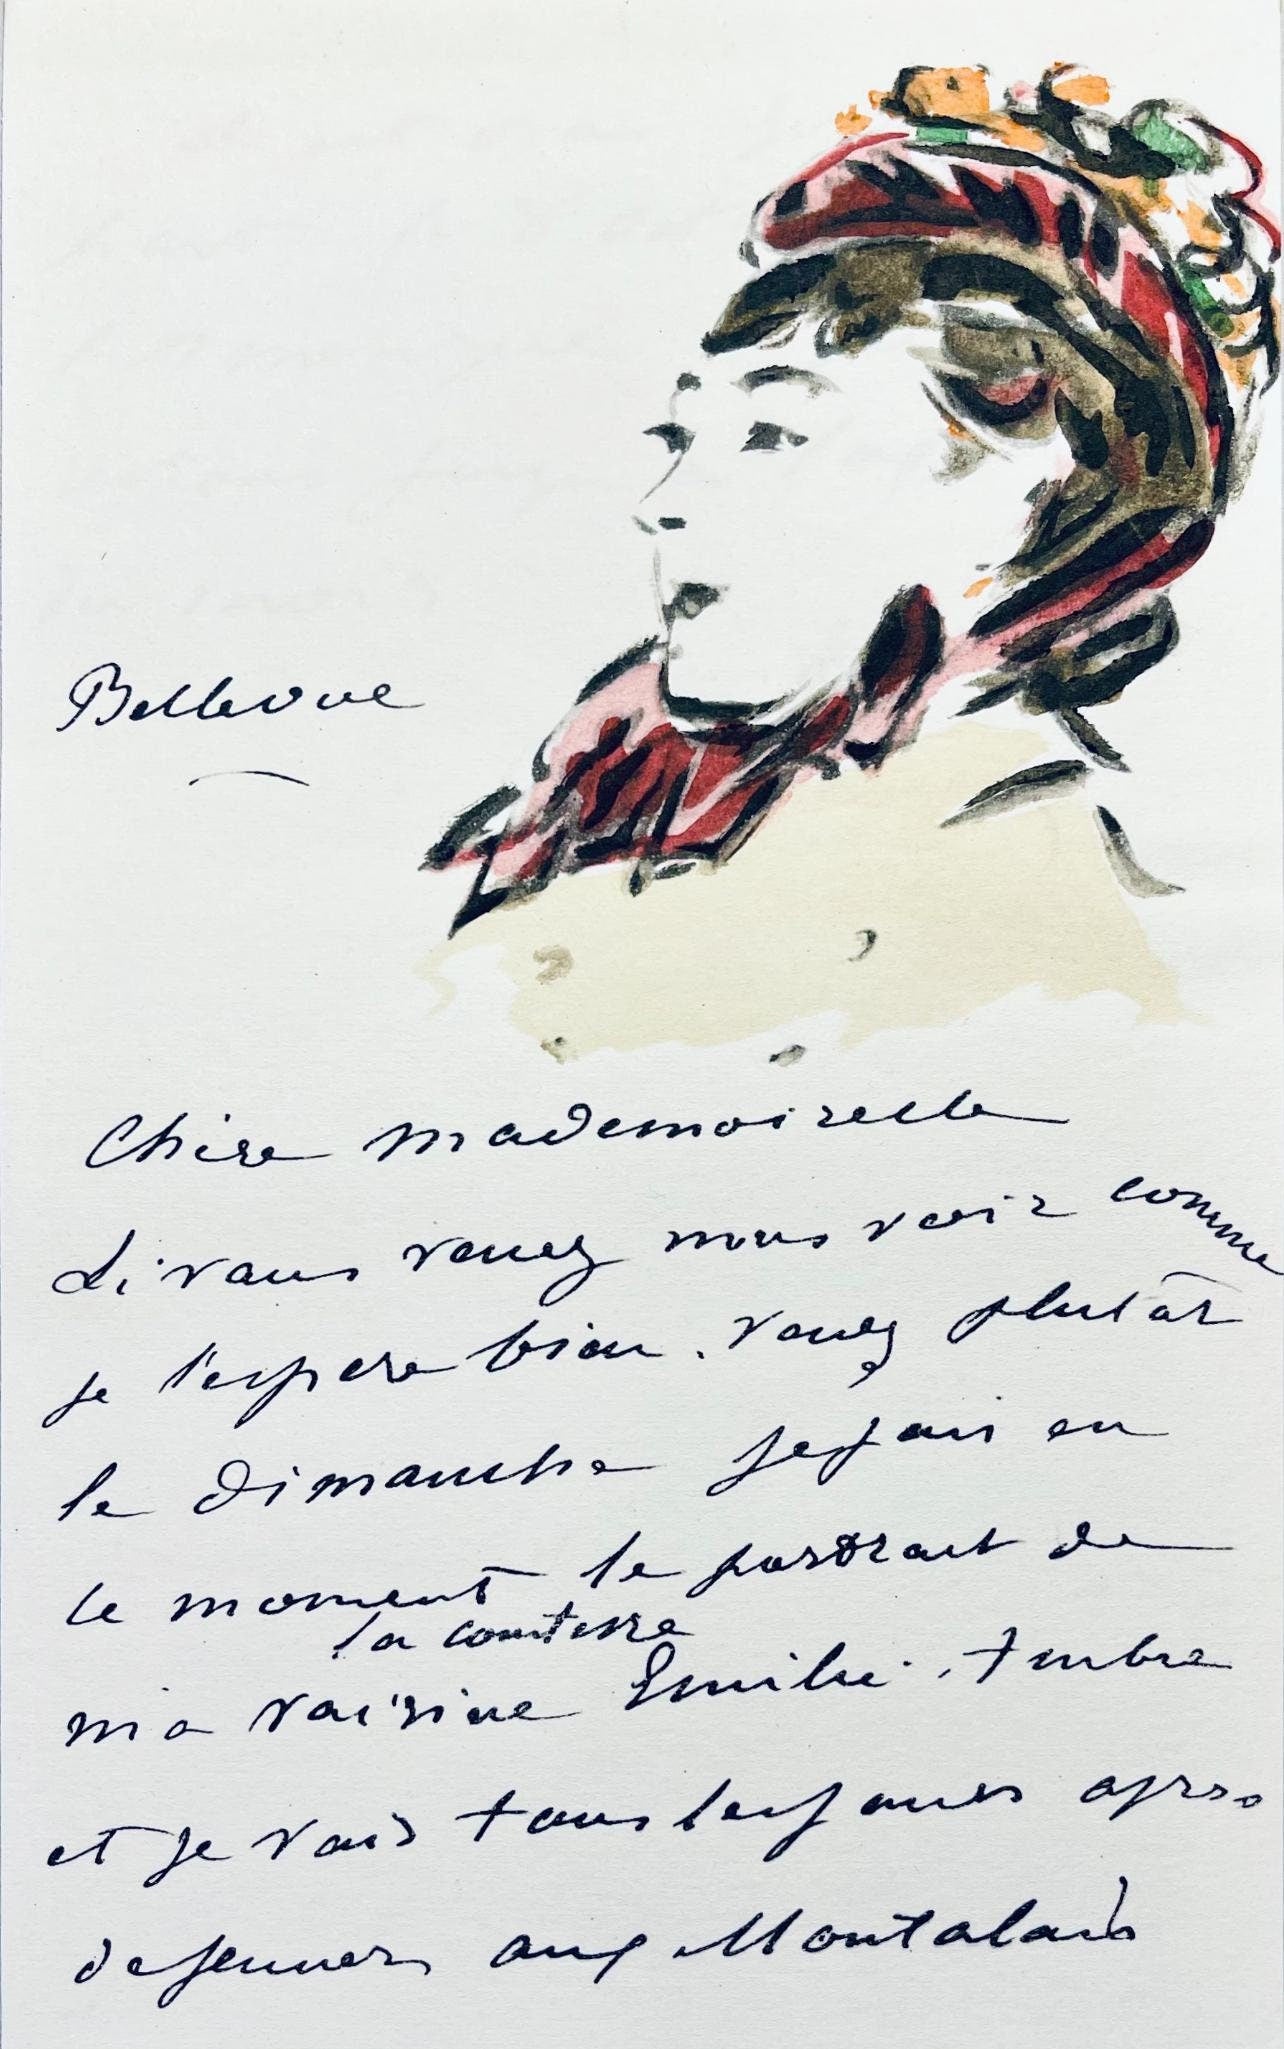 Bellevue
Chère mademoiselle
Si vous venez nous voir comme
je l'espère bien. venez plutôt
le dimanche je fais en
ce moment le portrait de
la comtesse
ma voisine Emilie
et je vais tous les jours apres
dejeuner aux Montalais